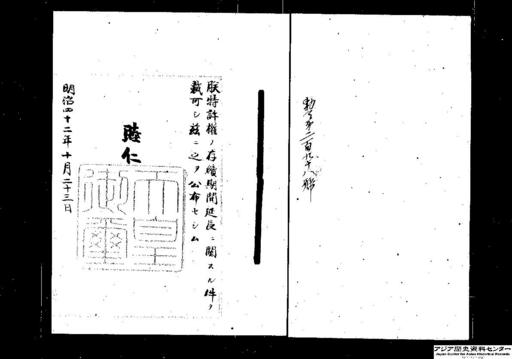 勅令第二百九十八号
朕特許権ノ存續期間延長ニ關スル件ヲ
裁可シ茲ニ之ヲ公布セシム
睦仁
天皇
御璽
明治四十二年十月二十三日
アジア歴史資料センター
Japan Center for Asian Historical Records